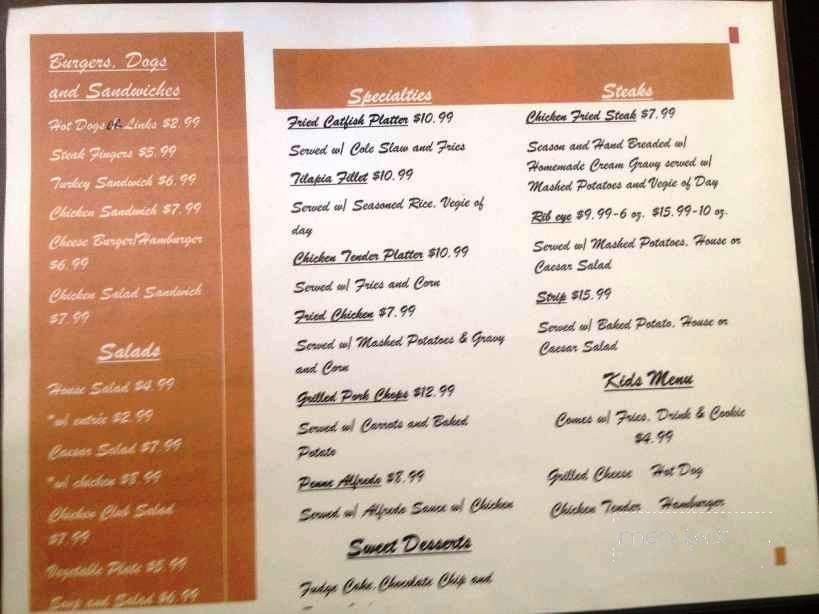 Burgers, Dogs
and Sandwiches
Hot Dogs or Links $2.99
Steak Fingers $5.99
Turkey Sandwich $6.99
Chicken Sandwich $7.99
Cheese Burger/Hamburger
$6.99
Chicken Salad Sandwich
$7.99
Salads
House Salad $4.99
*w/ entrée $2.99
Caesar Salad $7.99
*w/ chicken $8.99
Chicken Club Salad
$7.99
Vegetable Plate $5.99
Soup and Salad $6.99
Specialties
Fried Catfish Platter $10.99
Served w/ Cole Slaw and Fries
Tilapia Fillet $10.99
Served w/ Seasoned Rice, Vegie of
day
Chicken Tender Platter $10.99
Served w/ Fries and Corn
Fried Chicken $7.99
Served w/ Mashed Potatoes & Gravy
and Corn
Grilled Pork Chops $12.99
Served w/ Carrots and Baked
Potato
Penne Alfredo $8.99
Served w/ Alfredo Sauce w/ Chicken
Sweet Desserts
Fudge Cake, Chocolate Chip and
Steaks
Chicken Fried Steak $7.99
Season and Hand Breaded w/
Homemade Cream Gravy served w/
Mashed Potatoes and Vegie of Day
Rib eye $9.99-6 oz. $15.99-10 oz.
Served w/ Mashed Potatoes, House or
Caesar Salad
Strip $15.99
Served w/ Baked Potato, House or
Caesar Salad
Kids Menu
Comes w/ Fries, Drink & Cookie
$4.99
Grilled Cheese Hot Dog
Chicken Tender Hamburger